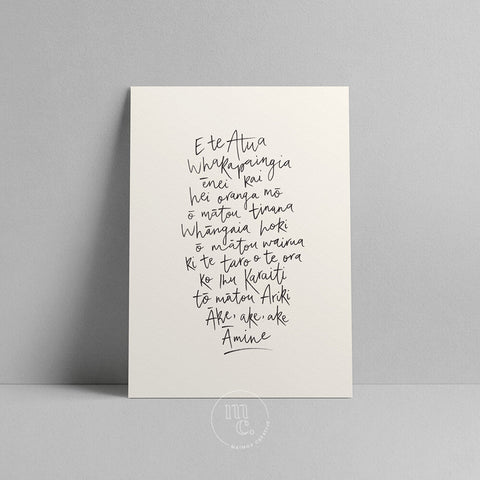 E te Atua
Whakapaingia
ēnei kai
hei oranga mō
ō mātou tinana
Whāngaia hoki
ō mātou wairua
ki te taro o te ora
ko Ihu Karaiti
tō mātou Ariki
Āke, ake, ake
Āmine
mc.